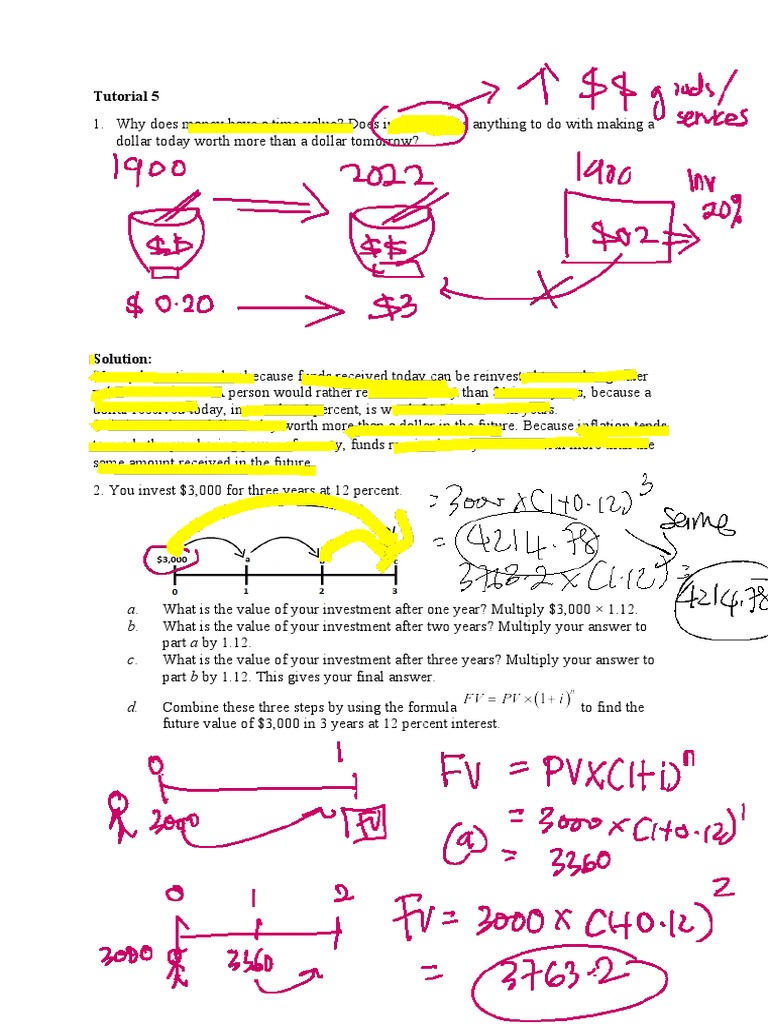 Tutorial 5
↑ $$ goods/
services
1. Why does money have a time value? Does i anything to do with making a
dollar today worth more than a dollar tomorrow?
1900
2022
1900
Inv
20%
$$
$$
$02
$ 0.20
$3
Solution:
because funds received today can be reinvest
A person would rather re than because a
today, in percent, is w years.
worth more than a dollar in the future. Because inflation tends
funds
same amount received in the future.
2. You invest $3,000 for three years at 12 percent.
= 3000 x (1+0.12)³
= 4214.78
3763.2 x (1.12) =
same
4214.78
$3,000 a b c
0 1 2 3
a. What is the value of your investment after one year? Multiply $3,000 × 1.12.
b. What is the value of your investment after two years? Multiply your answer to
part a by 1.12.
c. What is the value of your investment after three years? Multiply your answer to
part b by 1.12. This gives your final answer.
d. Combine these three steps by using the formula FV = PV×(1+i)ⁿ to find the
future value of $3,000 in 3 years at 12 percent interest.
0 1
3000 FV
FV = PVx(1+i)ⁿ
(a) = 3000 x (1+0.12)¹
= 3360
0 1 2
3000 3360
FV = 3000 x (1+0.12)²
= 3763.2